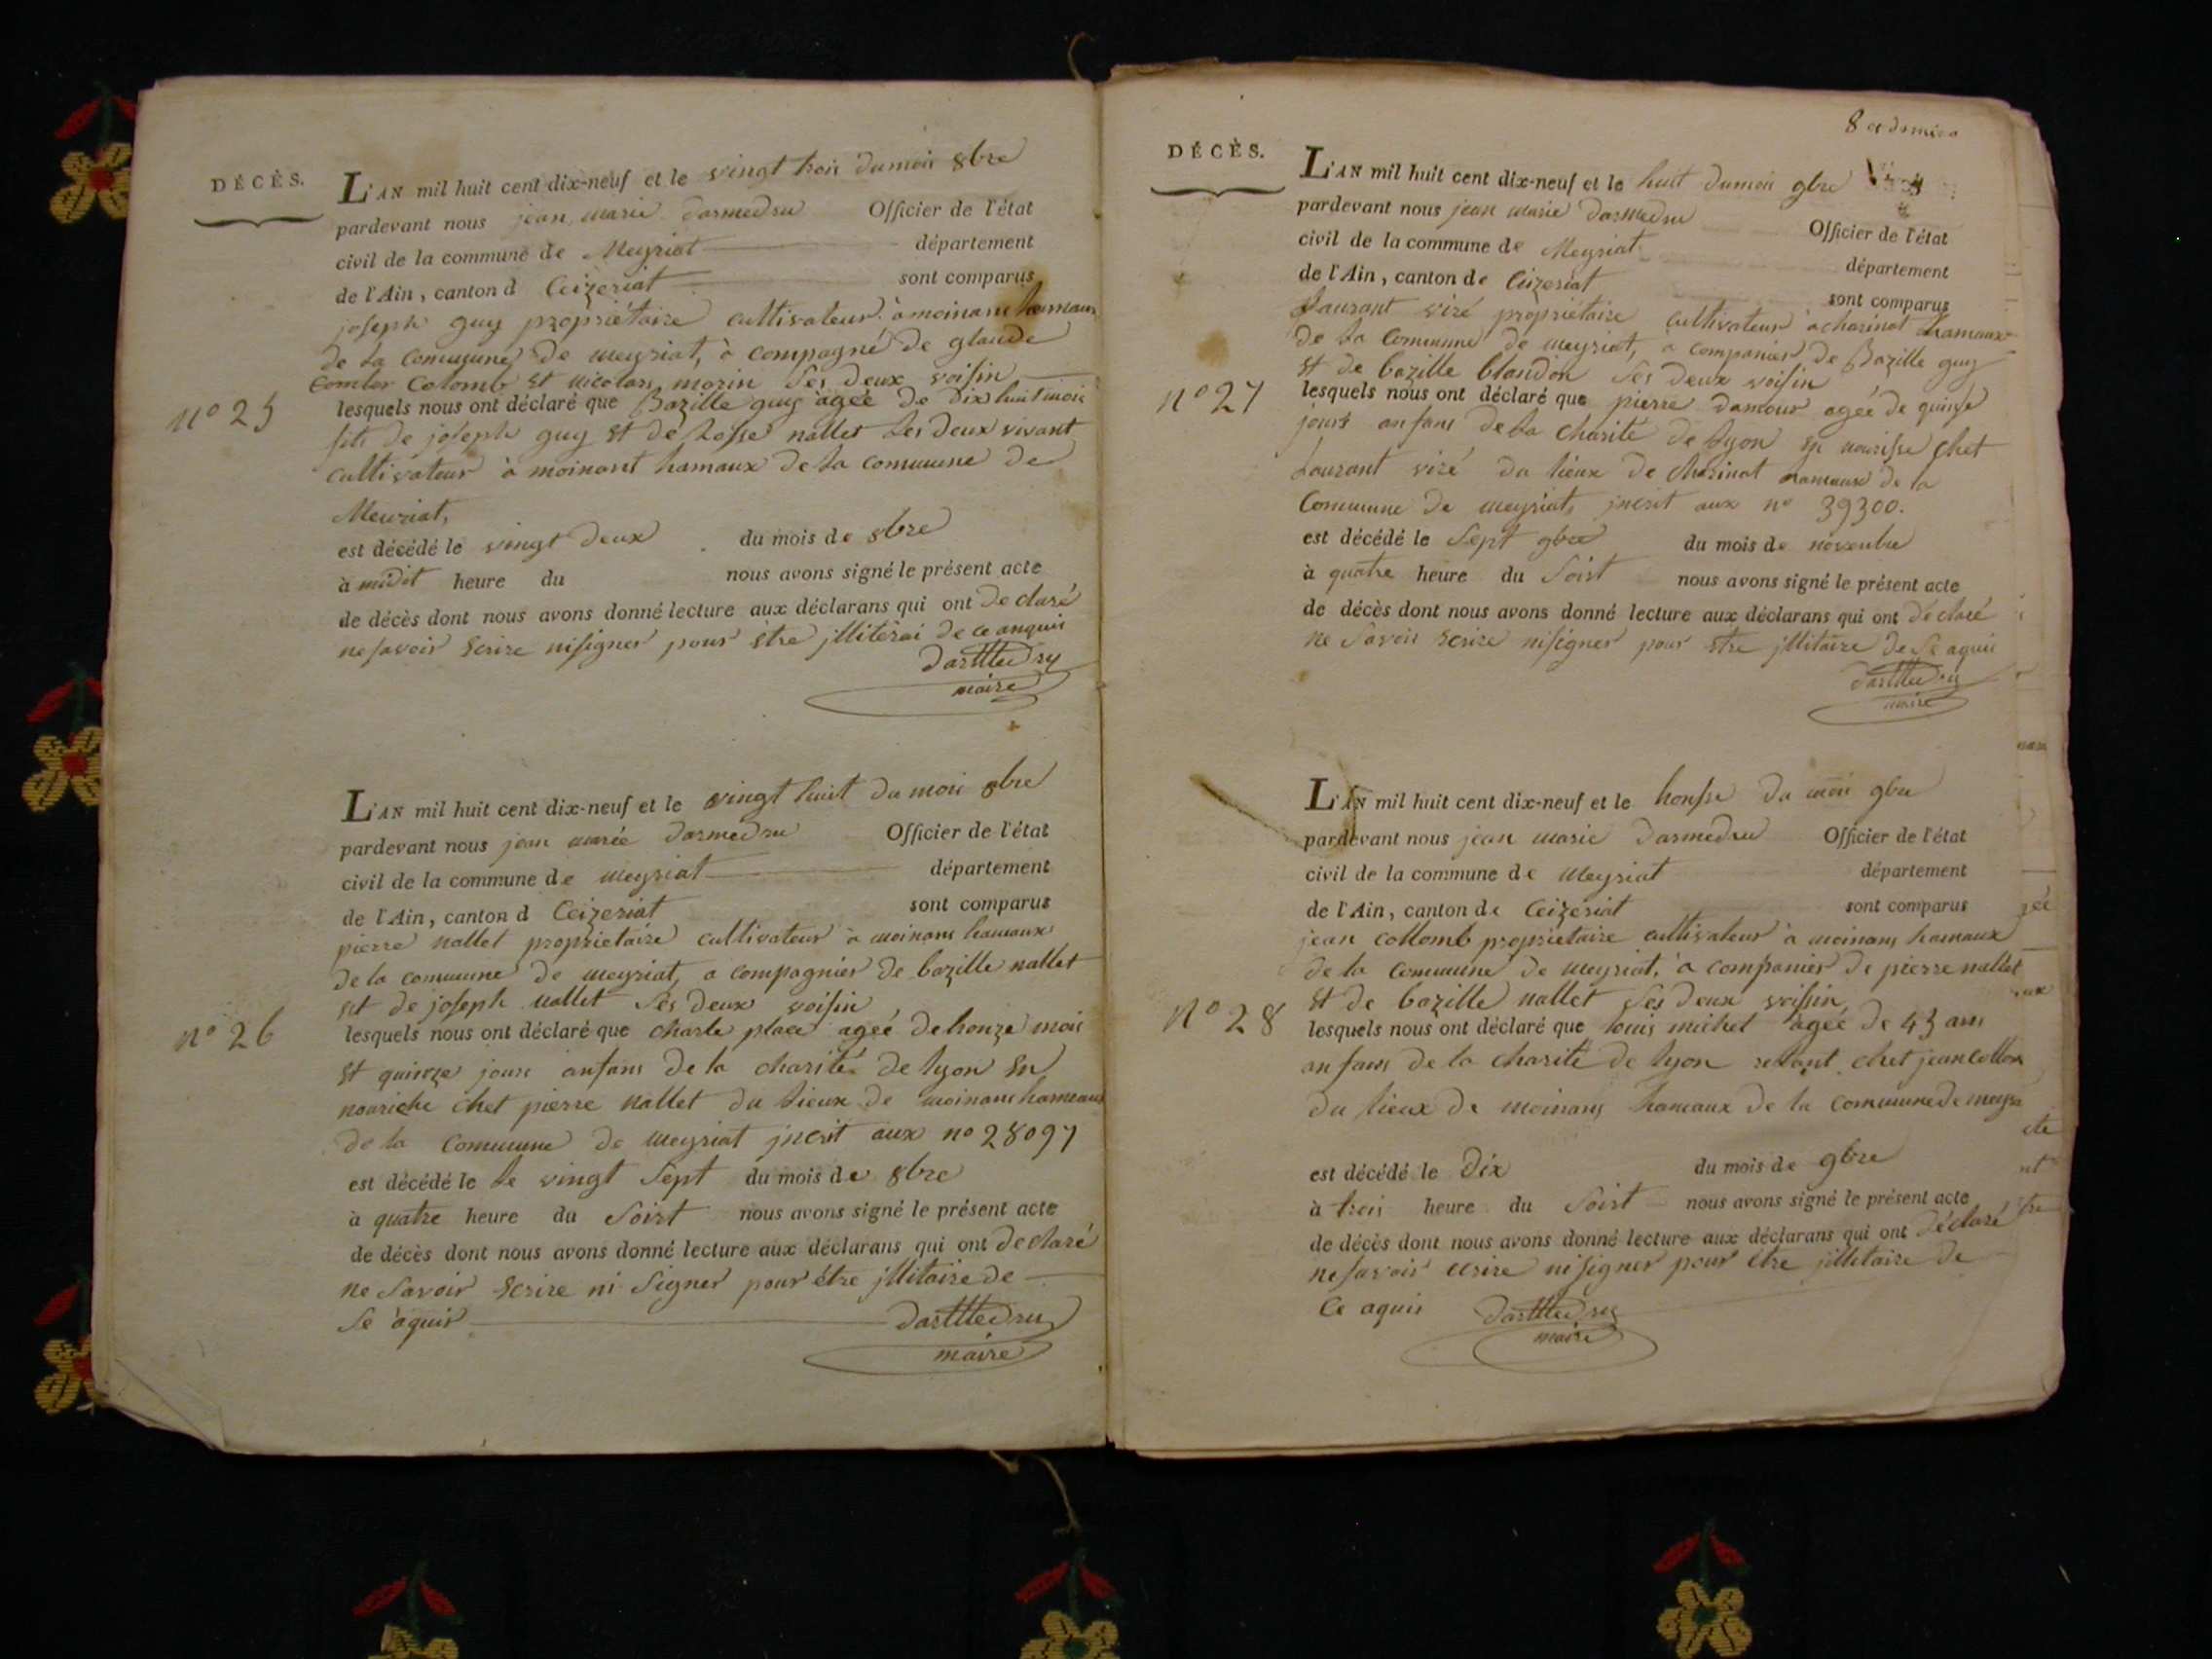 DÉCÈS.
L'AN mil huit cent dix-neuf et le vingt trois du mois 8bre
pardevant nous jean marie darmedru Officier de l'état
civil de la commune de Meyriat département
de l'Ain, canton d Ceizeriat sont comparus
joseph guy propriétaire cultivateur à moinans hamaux
de la Commune de meyriat, à compagné de glaude
Colomb et nicolas morin ses deux voisin
n° 25
lesquels nous ont déclaré que Bazille guy agée de dix huit mois
fils de joseph guy et de nallet les deux vivant
cultivateur à moinant hamaux de la commune de
Meyriat,
est décédé le vingt deux du mois de 8bre
à midit heure du nous avons signé le présent acte
de décès dont nous avons donné lecture aux déclarans qui ont declaré
ne savoir Ecrire ni signer pour être jlliterai de ce anquis
DarMedru
maire
L'AN mil huit cent dix-neuf et le vingt huit du mois 8bre
pardevant nous jean marie darmedru Officier de l'état
civil de la commune de meyriat département
de l'Ain, canton d Ceizeriat sont comparus
pierre nallet proprietaire cultivateur à moinans hamaux
de la commune de meyriat, a compagnier de bazille nallet
et de joseph nallet ses deux voisin
n° 26
lesquels nous ont déclaré que charle place agée de honze mois
et quinze jours anfans de la charité de lyon en
nouriche chet pierre nallet du lieux de moinans hamaux
de la Commune de meyriat jncrit aux no 28097
est décédé le le vingt Sept du mois de 8bre
à quatre heure du Soirt nous avons signé le présent acte
de décès dont nous avons donné lecture aux déclarans qui ont declaré
ne Savoir Ecrire ni Signer pour être jllitaire de
Se aquis DarMedru
maire
8
DÉCÈS.
L'AN mil huit cent dix-neuf et le huit du mois 9bre
pardevant nous jean marie darmedru Officier de l'état
civil de la commune de Meyriat département
de l'Ain, canton de Ceizeriat sont comparus
Laurant viré propriétaire cultivateur à charinat hamaux
de la Commune de meyriat, a companier de Bazille guy
et de bazille blandon ses deux voisin
n° 27
lesquels nous ont déclaré que pierre damour agée de quinse
jours anfans de la charité de lyon en nourisse chet
Laurant viré du lieux de charinat hamaux de la
Commune de meyriat, jncrit aux n° 39300.
est décédé le Sept 9bre du mois de novenbre
à quatre heure du Soirt nous avons signé le présent acte
de décès dont nous avons donné lecture aux déclarans qui ont déclaré
ne Savoir Ecrire ni signer pour etre jllitaire de Se aquis
DarMedru
maire
L'AN mil huit cent dix-neuf et le honsse du moi 9bre
pardevant nous jean marie darmedru Officier de l'état
civil de la commune de Meyriat département
de l'Ain, canton de Ceizériat sont comparus
jean collomb proprietaire cultivateur à moinans hamaux
de la Commune de meyriat, a companier de pierre nallet
et de bazille nallet ses deux voisin
N° 28
lesquels nous ont déclaré que louis michel agée de 43 ans
anfans de la charité de lyon chet jean
du lieux de moinans hamaux de la commune de
est décédé le dix du mois de 9bre
à trois heure du Soirt nous avons signé le présent acte
de décès dont nous avons donné lecture aux déclarans qui ont déclaré
ne savoir ecrire ni signer pour être jllitaire de
Ce aquis DarMedru
maire